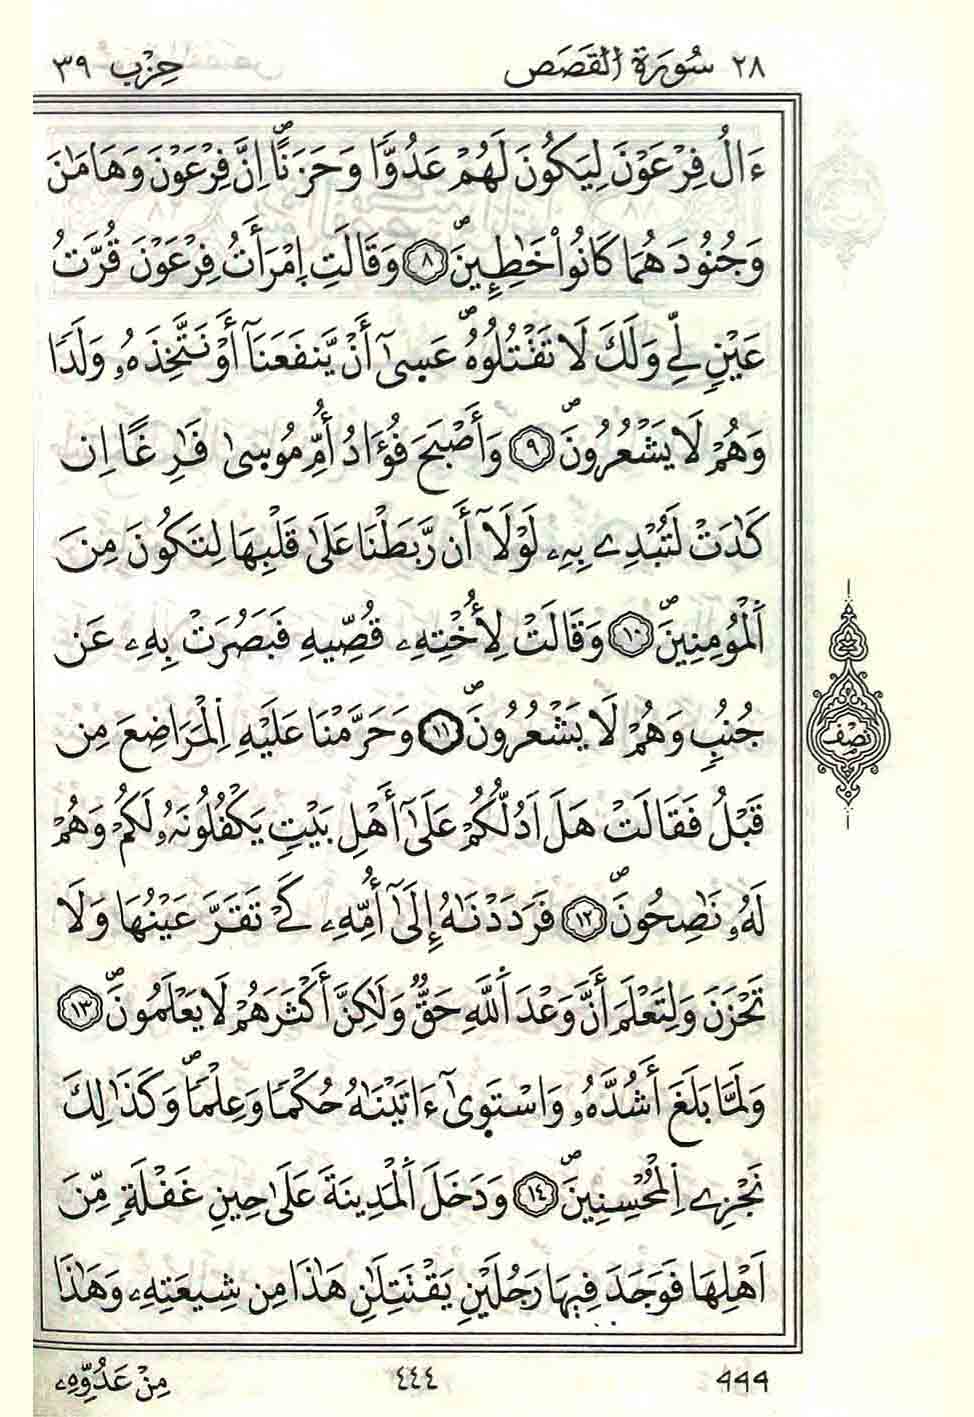 ٢٨ سُورَةُ القَصَصِ حِزْب ٣٩
ءَالُ فِرْعَوْنَ لِيَكُونَ لَهُمْ عَدُوّٗا وَحَزَناًۖ اِنَّ فِرْعَوْنَ وَهَٰمَٰنَ
وَجُنُودَهُمَا كَانُواْ خَٰطِـِٕينَۖ ٨ وَقَالَتِ اِمْرَأَتُ فِرْعَوْنَ قُرَّتُ
عَيْنٖ لِّے وَلَكَ لَا تَقْتُلُوهُۖ عَس۪ىٰٓ أَنْ يَّنفَعَنَآ أَوْ نَتَّخِذَهُۥ وَلَدٗا
وَهُمْ لَا يَشْعُرُونَۖ ٩ وَأَصْبَحَ فُؤَادُ أُمِّ مُوس۪ىٰ فَٰرِغاً اِن
كَٰدَتْ لَتُبْدِے بِهِۦ لَوْلَآ أَن رَّبَطْنَا عَلَىٰ قَلْبِهَا لِتَكُونَ مِنَ
اَ۬لْمُومِنِينَۖ ١٠ وَقَالَتْ لِأُخْتِهِۦ قُصِّيهِ فَبَصُرَتْ بِهِۦ عَن
جُنُبٖ وَهُمْ لَا يَشْعُرُونَۖ ١١ وَحَرَّمْنَا عَلَيْهِ اِ۬لْمَرَاضِعَ مِن
نِصْف
قَبْلُ فَقَالَتْ هَلَ اَدُلُّكُمْ عَلَىٰٓ أَهْلِ بَيْتٖ يَكْفُلُونَهُۥ لَكُمْ وَهُمْ
لَهُۥ نَٰصِحُونَۖ ١٢ فَرَدَدْنَٰهُ إِلَىٰٓ أُمِّهِۦ كَےْ تَقَرَّ عَيْنُهَا وَلَا
تَحْزَنَ وَلِتَعْلَمَ أَنَّ وَعْدَ اَ۬للَّهِ حَقّٞ وَلَٰكِنَّ أَكْثَرَهُمْ لَا يَعْلَمُونَۖ ١٣
وَلَمَّا بَلَغَ أَشُدَّهُۥ وَاسْتَو۪ىٰٓ ءَاتَيْنَٰهُ حُكْماٗ وَعِلْماٗۖ وَكَذَٰلِكَ
نَجْزِے اِ۬لْمُحْسِنِينَۖ ١٤ وَدَخَلَ اَ۬لْمَدِينَةَ عَلَىٰ حِينِ غَفْلَةٖ مِّنَ
اَهْلِهَا فَوَجَدَ فِيهَا رَجُلَيْنِ يَقْتَتِلَٰنِ هَٰذَا مِن شِيعَتِهِۦ وَهَٰذَا
444 ٤٤٤ مِنْ عَدُوِّهِۦ